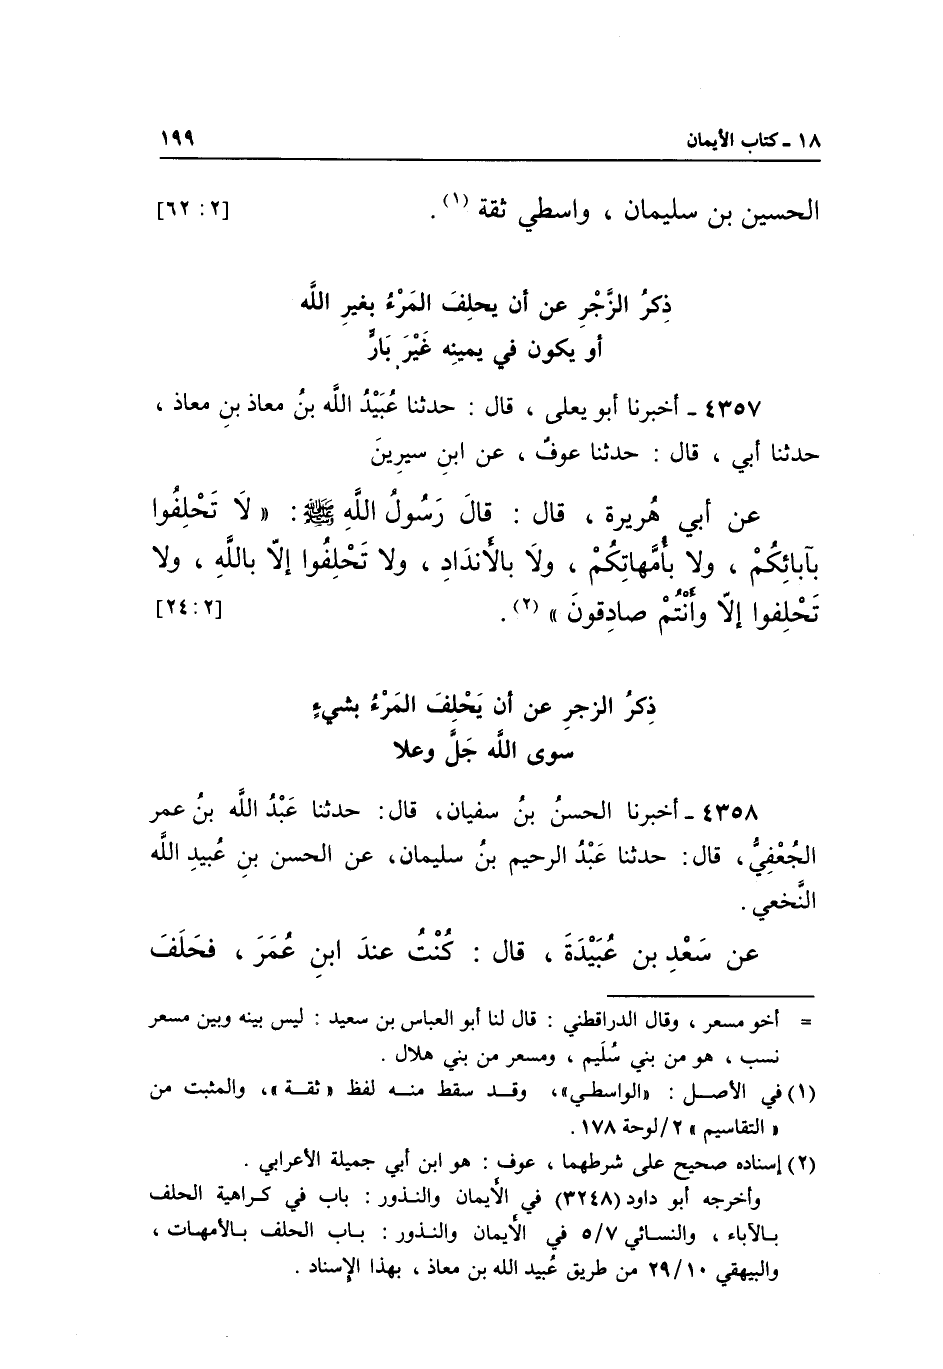 ١٨ ـ كتاب الأيمان ١٩٩
الحسين بن سليمان ، واسطي ثقة (١) . [٢ : ٦٢]
ذِكرُ الزَّجْرِ عن أن يحلِفَ المَرْءُ بغيرِ اللَّه
أو يكون في يمينِه غَيْرَ بَارٍّ
٤٣٥٧ ـ أخبرنا أبو يعلى ، قال : حدثنا عُبَيْدُ اللَّه بنُ معاذ بنِ معاذ ،
حدثنا أبي ، قال : حدثنا عوفٌ ، عن ابنِ سيرينَ
عن أبي هُريرة ، قال : قالَ رَسُولُ اللَّهِ ﷺ : « لَا تَحْلِفُوا
بآبائِكُمْ ، ولا بأُمَّهاتِكُمْ ، ولَا بالأَندَادِ ، ولا تَحْلِفُوا إلّا باللَّهِ ، ولا
تَحْلِفوا إلّا وأَنْتُمْ صادِقونَ » (٢) . [٢ : ٢٤]
ذِكرُ الزجرِ عن أن يَحْلِفَ المَرْءُ بشيءٍ
سوى اللَّه جَلَّ وعلا
٤٣٥٨ ـ أخبرنا الحسنُ بنُ سفيان، قال: حدثنا عَبْدُ اللَّه بنُ عمر
الجُعْفِيُّ، قال: حدثنا عَبْدُ الرحيم بنُ سليمان، عن الحسن بنِ عُبيدِ اللَّه
النَّخعي .
عن سَعْدِ بن عُبَيْدَةَ ، قال : كُنْتُ عندَ ابنِ عُمَرَ ، فحَلَفَ
= أخو مسعر ، وقال الدراقطني : قال لنا أبو العباس بن سعيد : ليس بينه وبين مسعر
نسب ، هو من بني سُلَيم ، ومسعر من بني هلال .
(١) في الأصل : «الواسطي»، وقد سقط منه لفظ « ثقة »، والمثبت من
« التقاسيم » ٢/لوحة ١٧٨ .
(٢) إسناده صحيح على شرطهما ، عوف : هو ابن أبي جميلة الأعرابي .
وأخرجه أبو داود (٣٢٤٨) في الأَيمان والنذور : باب في كراهية الحلف
بالآباء ، والنسائي ٥/٧ في الأَيمان والنذور : باب الحلف بالأمهات ،
والبيهقي ٢٩/١٠ من طريق عُبيد الله بن معاذ ، بهذا الإسناد .